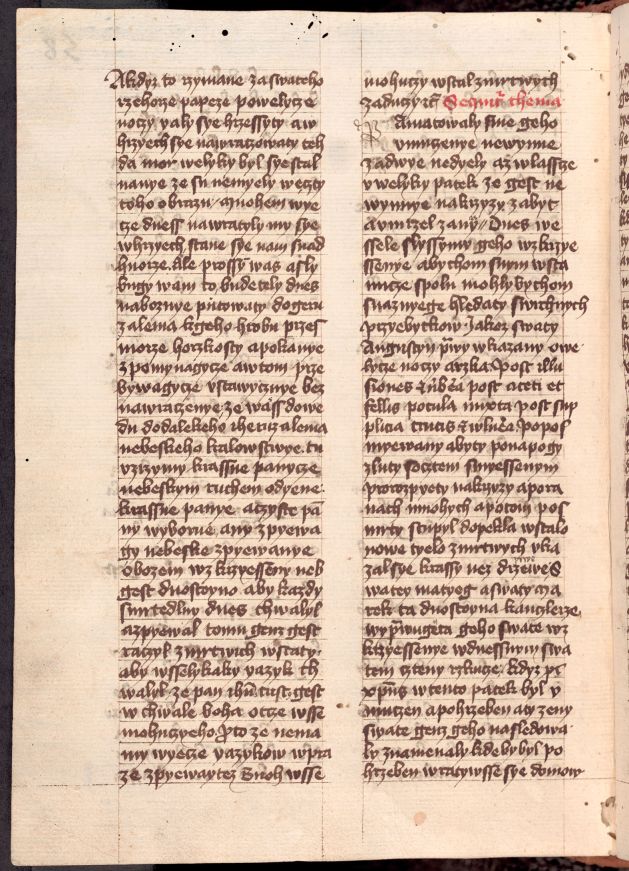 A kdyz to rzymane za swateho
rzehorze papeze powelycze
noczy valy sye hrzessyty a w
hrzyech sye nawraczowaty teh
da mor welyky byl sye stal
nanye ze su nemyely weczty
toho obrazu mnohem wye
cze dness nawratyly my sye
w hrzyech stane sye nam snad
huorze. Ale prossy was a sly
bugy wam to budete ly dnes
naboznye putowaty do geru
zalema k geho hrobu przes
morze horzkosty a pokanye
zpomynagycze a w tom prze
bywagycze vstawycznye bez
nawraczenye ze was dowe
du do dalekeho iheruzalema
nebeskeho kralowstwye tu
vzrzymy krassne panycze
nebeskym ruchem odyene
krassne panye a czyste pa
ny wyborne any zpyewa
gy nebeske zpyewanye
o bozem wzkrzyesseny neb
gest duostoyno aby kazdy
smrtedlny dnes chwalyl
a zpyewal tomu genz gest
raczyl z mrtwich wstaty.
aby wsselykaky yazyk ch
walyl ze pan ihus cristus gest
w chwale boha otcze wsse
mohuczyeho. Protoze nema
my wyecze yazykow w pra
ze zpyewaytez Buoh wsse
mohuczy wstal z mrtwych
zaduczy Secundum thema
Amatowaly sme geho
vmuczenye newynne
za dwye nedyely az wlasscze
v welyky patek ze gest ne
wynnye na krzyzy zabyt
a vmrzel za ny Dnes we
ssele slyssymy geho wzkrzye
ssenye abychom s nym wsta
nucze spolu mohly bychom
snaznyege hledaty swrchnych
przyebytkow Jakoz swaty
Augustyn prwy wkazany o we
lycze noczy a rzka Post illu
siones et verbera post aceti et
fellis pocula mixta post sup
plicia crucis et vulnera Po pos
myewany a byty po napogy
zluty s octem smyessenym
po rozpyety na krzyzy a po ra
nach mnohych a potom pos
mrty stupyl do pekla wstalo
nowe tyelo z mrtwych vka
zal sye krassy nez drzewe S
waty matyeg a swaty ma
rek ta duostoyna kanglerze
wyprawugeta geho swate wz
krzyessenye w dnessnym swa
tem czteny rzkucze. Kdyz pan
xpristus w tento patek byl v
muczen a pohrzeben a ty zeny
swate genz geho nasledowa
ly znamenaly kde by byl po
hrzeben wratywsse sye domow